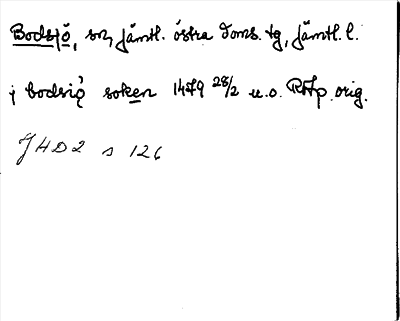 Bodsjö, sn, Jämtl. östra doms. tg, Jämtl. l.
j bodsiø soken 1479 28/2 u.o. RAp. orig.
JHD2 s 126